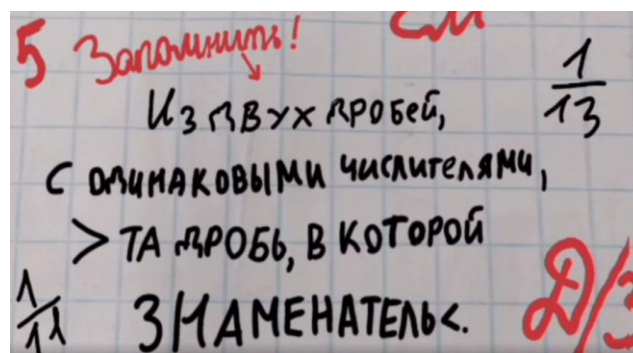 см
5 Запомнить!
Из двух дробей, 1/13
с одинаковыми числителями,
> та дробь, в которой
1/11 знаменатель <.
Д/З